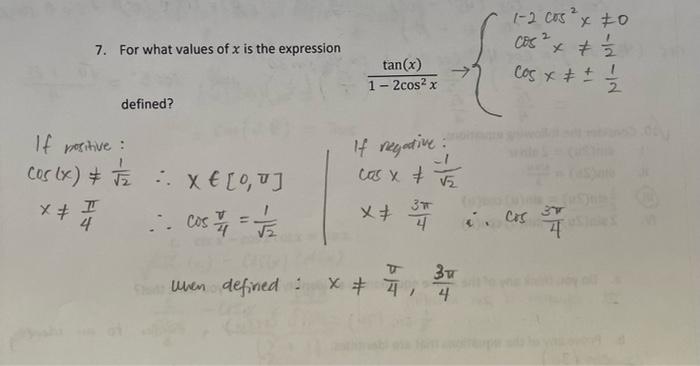 7. For what values of x is the expression
tan(x)
1 − 2cos² x
defined?
→ { 1-2 cos² x ≠ 0
cos² x ≠ 1/2
cos x ≠ ± 1/2
If positive :
cos(x) ≠ 1/√2 ∴ x ∈ [0, π]
x ≠ π/4 ∴ cos π/4 = 1/√2
If negative :
cos x ≠ -1/√2
x ≠ 3π/4 ∴ cos 3π/4
when defined : x ≠ π/4, 3π/4